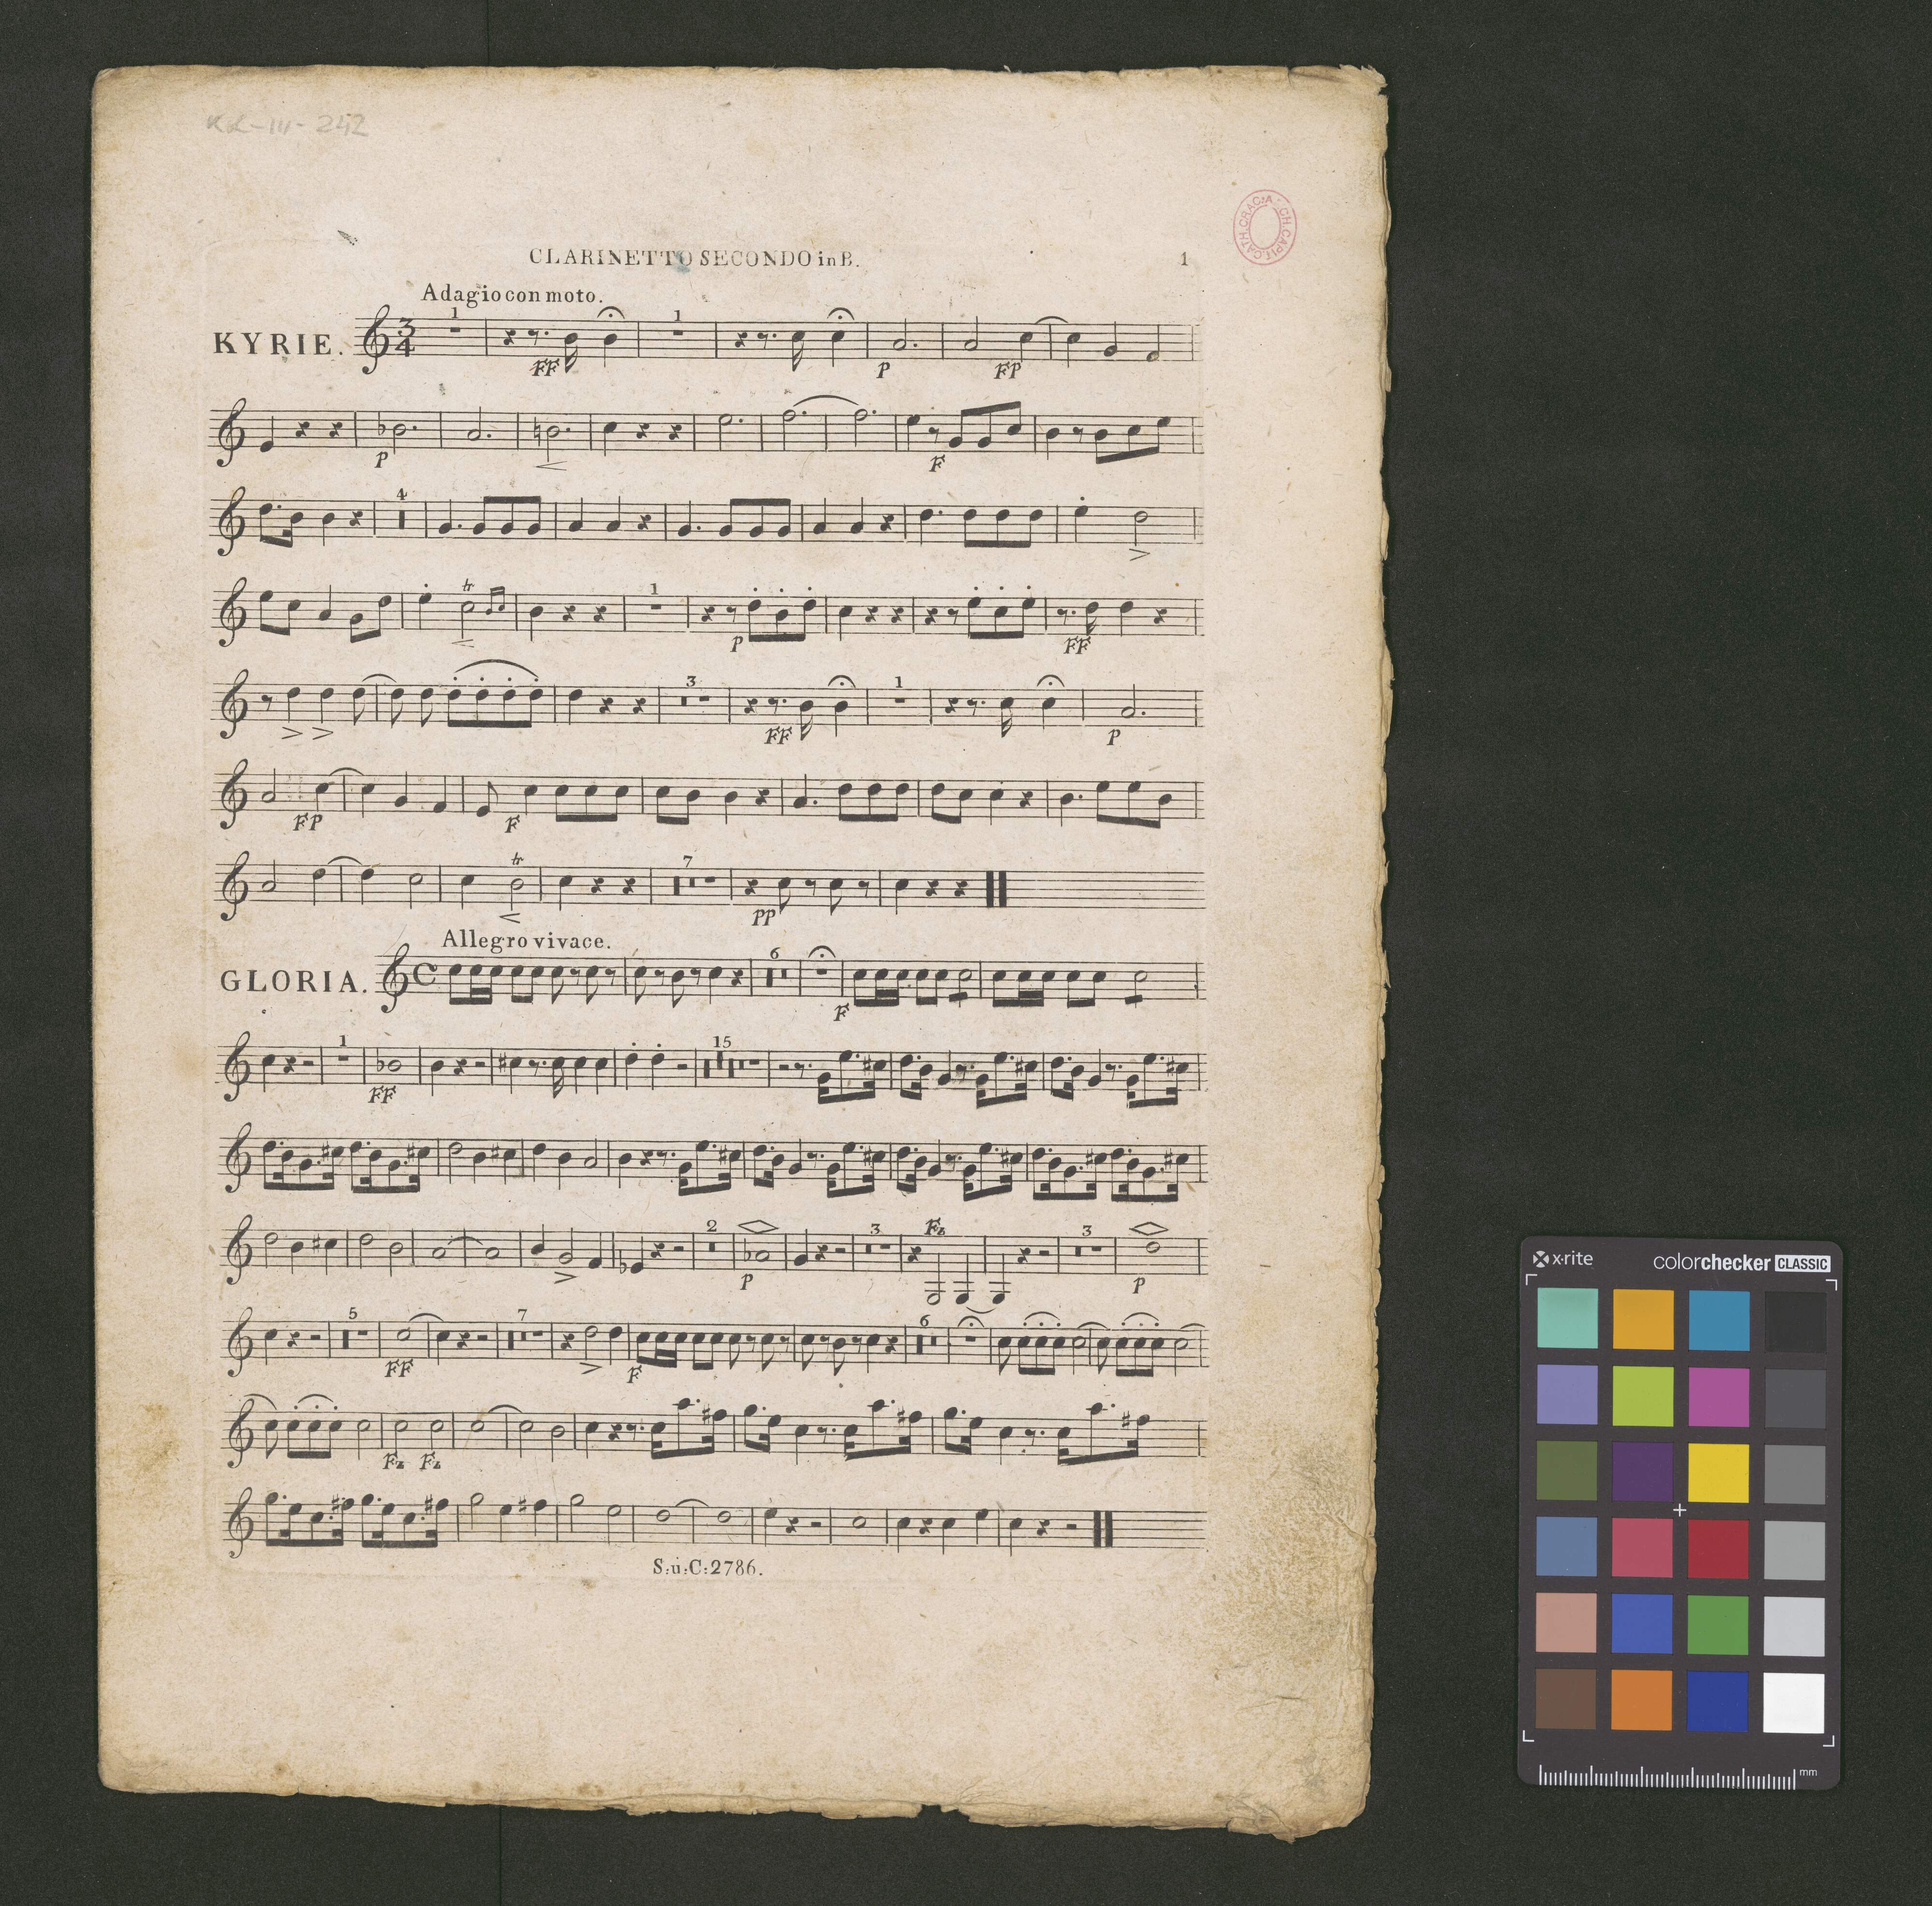 KL-III-242
CATH.CRAC. CH.CAPIT.
CLARINETTO SECONDO in B.
1
Adagio con moto.
KYRIE.
3
4
1
1
FF
P
FP
P
F
4
tr
1
P
FF
3
1
FF
P
FP
F
tr
7
PP
Allegro vivace.
GLORIA.
C
6
F
1
15
FF
2
3
Fz
3
P
P
5
7
6
FF
F
Fz Fz
S:u:C:2786.
x·rite
colorchecker CLASSIC
mm